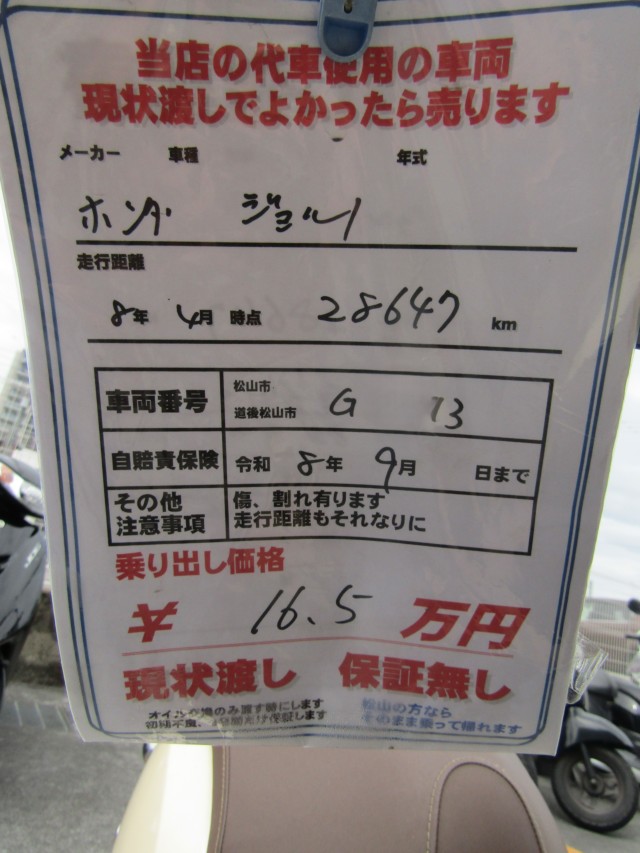 当店の代車使用の車両
現状渡しでよかったら売ります
メーカー 車種 年式
ホンダ ジョルノ
走行距離
8年 4月 時点 28647 km
車両番号 松山市 道後松山市 G 13
自賠責保険 令和 8年 9月 日まで
その他 注意事項 傷、割れ有ります
走行距離もそれなりに
乗り出し価格
¥ 16.5 万円
現状渡し 保証無し
オイル交換のみ渡す時にします
松山の方なら
そのまま乗って帰れます